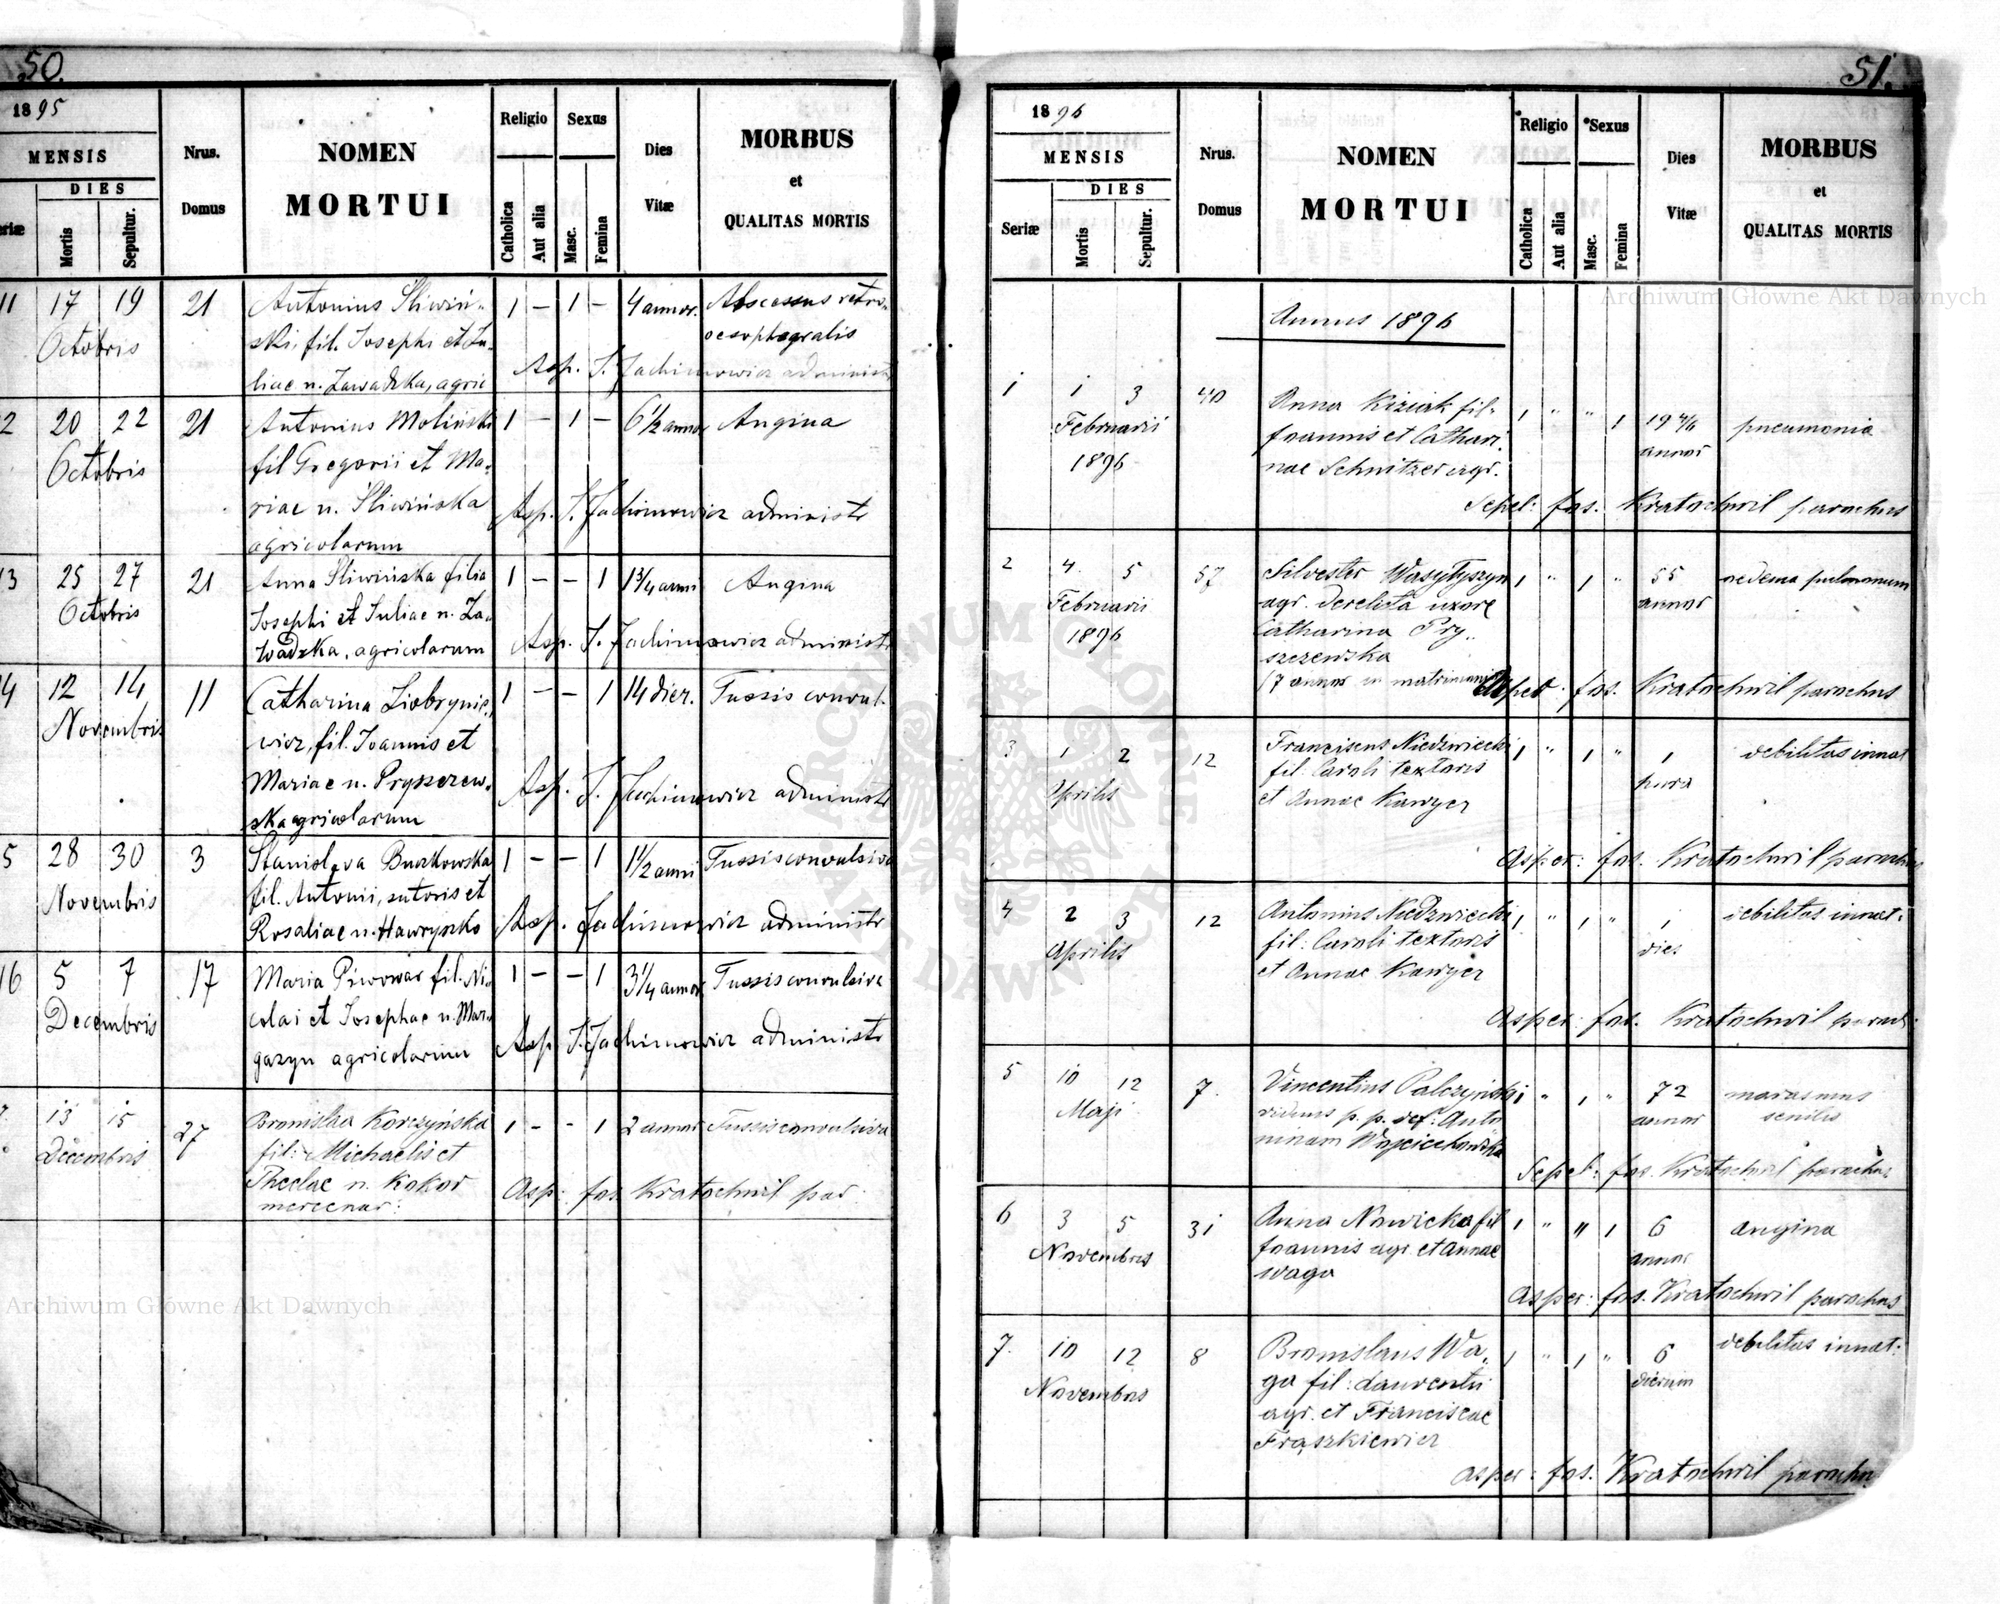 50.
1895
MENSIS
DIES
Mortis
Sepultur.
Nrus.
Domus
NOMEN
MORTUI
Religio
Catholica
Aut alia
Sexus
Masc.
Femina
Dies
Vitæ
MORBUS
et
QUALITAS MORTIS
11 17 19 21 Antonius Śliwiń- 1 – 1 – 4 annor. Abscessus retro-
Octobris ski, fil. Josephi et Ju- oesophagealis
liae n. Zawadzka, agric Asp. J. Jachimowicz administr
2 20 22 21 Antonius Moliński 1 – 1 – 6 1/2 annor Angina
Octobris fil Gregorii et Ma-
riae n. Śliwińska Asp. J. Jachimowicz administr
agricolarum
13 25 27 21 Anna Śliwińska filia 1 – – 1 1 3/4 anni Angina
Octobris Josephi et Juliae n. Za-
wadzka, agricolarum Asp. J. Jachimowicz administr
14 12 14 11 Catharina Ziobrynie- 1 – – 1 14 dier. Tussis convul-
Novembris wicz, fil. Joannis et
Mariae n. Pryszczew- Asp. J. Jachimowicz administr
ska agricolarum
5 28 30 3 Stanislava Buczkowska 1 – – 1 1 1/2 anni Tussis convulsiva
Novembris fil. Antonii, sutoris et
Rosaliae n. Hawryszko Asp. Jachimowicz administr
16 5 7 17 Maria Piwowar fil. Ni- 1 – – 1 3 1/4 annor Tussis convulsiva
Decembris colai et Josephae n. Mar-
gazyn agricolarum Asp. J. Jachimowicz administr
13 15 27 Bronislva Korczyńska 1 – – 1 2 annor Tussis convulsiva
Decembris fil: Michaelis et
Theclae n. Kokor Asp: Jos. Kratochwil par:
mercenar:
51.
1896
MENSIS
Seriæ
DIES
Mortis
Sepultur.
Nrus.
Domus
NOMEN
MORTUI
Religio
Catholica
Aut alia
Sexus
Masc.
Femina
Dies
Vitæ
MORBUS
et
QUALITAS MORTIS
Annus 1896
1 1 3 40 Anna Kiziak fil- 1 " " 1 19 pneumonia
Februarii Joannis et Cathari- annor
1896 nae Schnitzer agr.
Sepel: Jos. Kratochwil parochus
2 4. 5 57 Silvester Wasyłyszyn 1 " 1 " 55 oedema pulmonum
Februarii agr. derelicta uxore annor
1896 Catharina Pry-
szczewska
(7 annor in matrimonio
Asper: Jos. Kratochwil parochus
3 1 2 12 Franciscus Niedzwiecki 1 " 1 " 1 debilitas innat
Aprilis fil: Caroli textoris hora
et Annae Kawyer
Asper: Jos. Kratochwil parochus
4 2 3 12 Antonius Niedzwiecki 1 " 1 " 1 debilitas innat.
Aprilis fil: Caroli textoris dies
et Annae Kawyer
Asper: Jos. Kratochwil paroch
5 10 12 7. Vincentius Palczyński 1 " 1 " 72 marasmus
Maji viduus p. p. def. Anto annor senilis
ninam Wojciechowska
Sepel: Jos. Kratochwil parochus
6 3 5 31 Anna Nowicka fil 1 " " 1 6 angina
Novembris Joannis agr. et Annae annor
Waga
Asper: Jos. Kratochwil parochus
7. 10 12 8 Bronislaus Wa- 1 " 1 " 6 debilitas innat.
Novembris ga fil: Laurentii dierum
agr. et Franciscae
Frąszkiewicz
Asper: Jos. Kratochwil parochu
Archiwum Główne Akt Dawnych
Archiwum Główne Akt Dawnych
ARCHIWUM GŁÓWNE AKT DAWNYCH